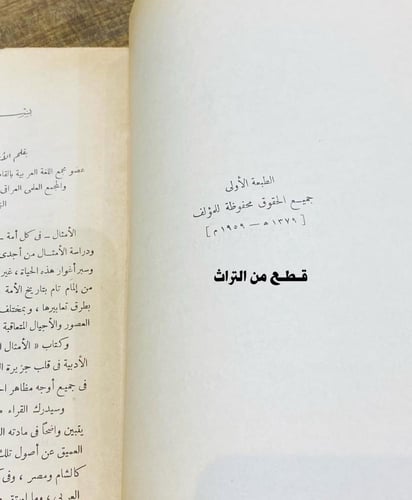 الطبعة الأولى
جميع الحقوق محفوظة للمؤلف
[ ١٣٧٩ هـ — ١٩٥٩ م ]
قطع من التراث
بقلم الأ
عضو مجمع اللغة العربية بالقا
والمجمع العلمى العراقى
الأمثال – فى كل أمة –
ودراسة الأمثال من أجدى
وسبر أغوار هذه الحياة ، غير
من إلمام تام بتاريخ الأمة
بطرق تعابيرها ، وبمختلف
العصور والأجيال المتعاقبة
وكتاب « الأمثال ال
الأدبية فى قلب جزيرة ال
فى جميع أوجه مظاهر الح
وسيدرك القراء
يتبين واضحاً فى مادته ال
العميق عن أصول تلك
كالشام ومصر ، وفى